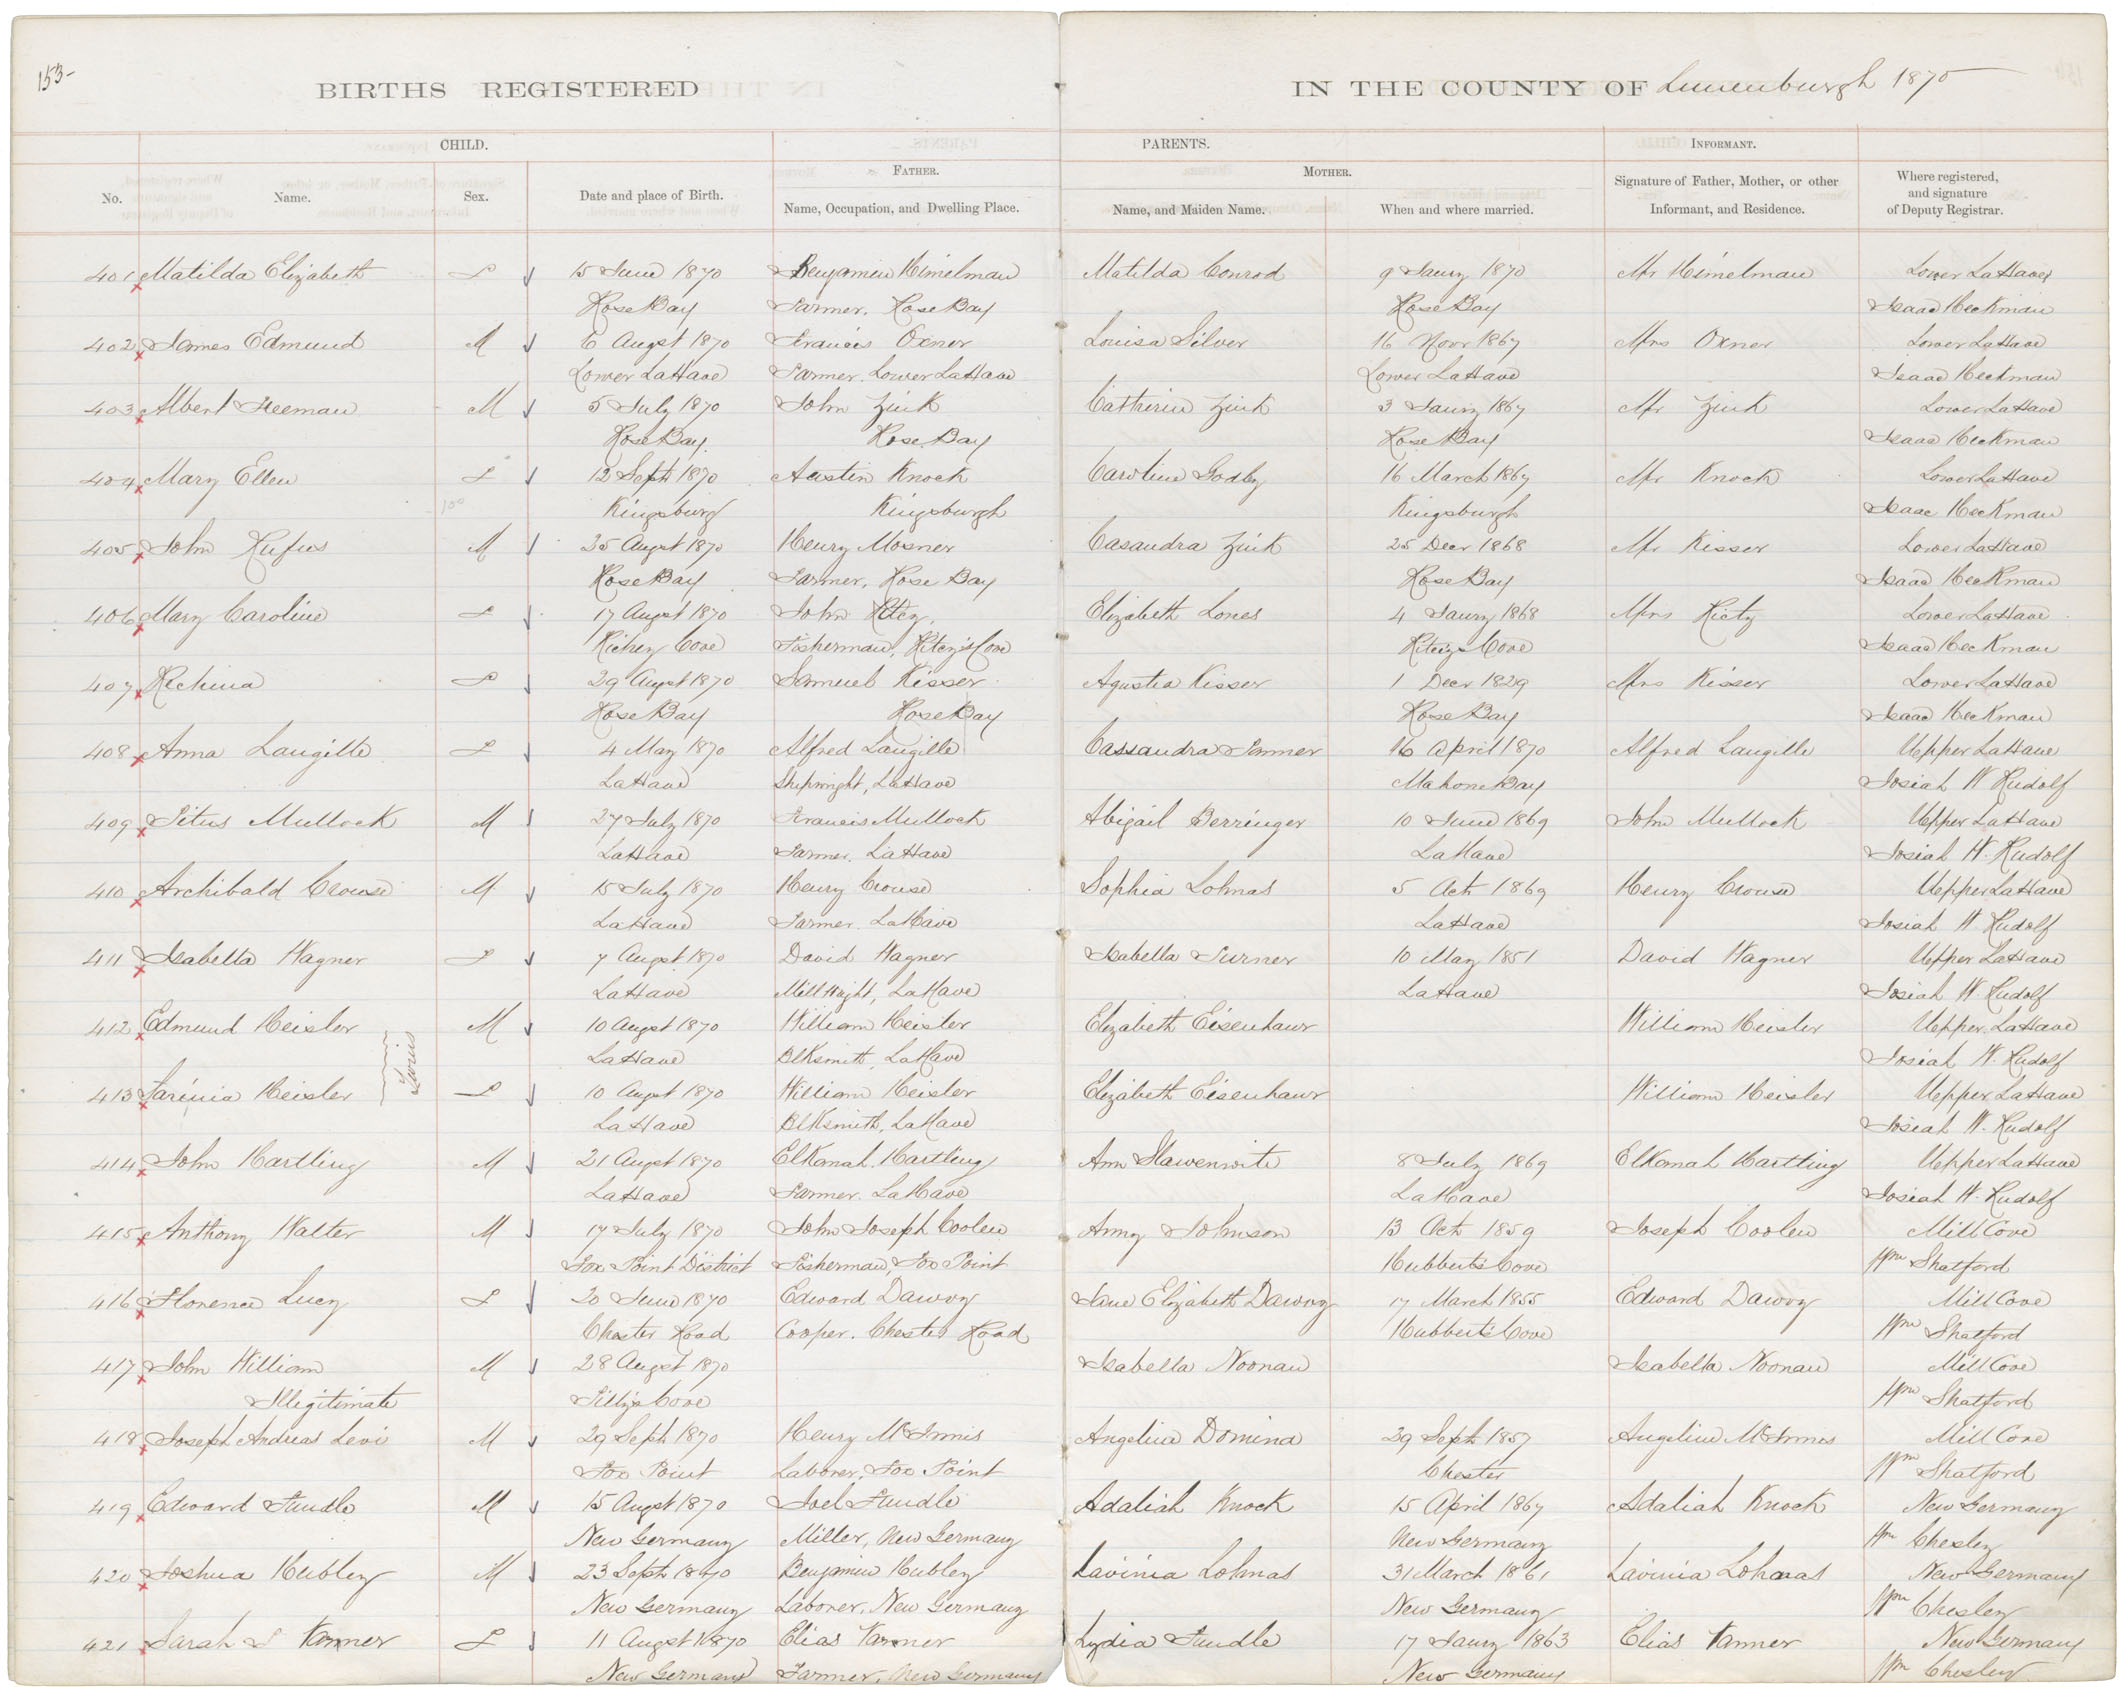 153-
BIRTHS REGISTERED IN THE COUNTY OF Lunenburgh 1870
CHILD. PARENTS. INFORMANT.
No. Name. Sex. Date and place of Birth. FATHER. Name, Occupation, and Dwelling Place. MOTHER. Name, and Maiden Name. When and where married. Signature of Father, Mother, or other Informant, and Residence. Where registered, and signature of Deputy Registrar.
401 Matilda Elizabeth F 15 June 1870 Benjamin Himelman Matilda Conrod 9 Jauny 1870 Mr Himelman Lower LaHave
Rose Bay Farmer. Rose Bay Rose Bay Isaac Heckman
402 James Edmund M 6 Augst 1870 Francis Oxner Louisa Silver 16 Novr 1867 Mrs Oxner Lower LaHave
Lower LaHave Farmer. Lower LaHave Lower LaHave Isaac Heckman
403 Albert Freeman M 5 July 1870 John Zink Catherine Zink 3 Jauny 1867 Mr Zink Lower LaHave
Rose Bay. Rose Bay Rose Bay Isaac Heckman
404 Mary Ellen F 12 Septr 1870 Austin Knock Caroline Godby 16 March 1867 Mr Knock Lower LaHave
Kingsburg Kingsburgh Kingsburgh Isaac Heckman
405 John Rufus M 25 Augst 1870 Henry Mosner Casandra Zink 25 Decr 1868 Mr Risser Lower LaHave
Rose Bay Farmer, Rose Bay Rose Bay Isaac Heckman
406 Mary Caroline F 17 Augst 1870 John Ritcy, Elizabeth Lones 4 Jauny 1868 Mrs Rietz Lower LaHave
Richey Cove Fisherman, Ritcy's Cove Ritcey's Cove Isaac Heckman
407 Richina F 29 Augst 1870 Samuel Risser Agustia Risser 1 Decr 1829 Mrs Risser Lower LaHave
Rose Bay Rose Bay Rose Bay Isaac Heckman
408 Anna Langille F 4 May 1870 Alfred Langille Cassandra Penner 16 April 1870 Alfred Langille Upper LaHave
LaHave Shipwright, LaHave Mahone Bay Josiah W Rudolf
409 Titus Mullock M 27 July 1870 Francis Mullock Abigail Berringer 10 June 1869 John Mullock Upper LaHave
LaHave Farmer. LaHave LaHave Josiah W. Rudolf
410 Archibald Crouse M 15 July 1870 Henry Crouse Sophia Lohnas 5 Octr 1869 Henry Crouse Upper LaHave
LaHave Farmer. LaHave LaHave Josiah W. Rudolf
411 Isabella Wagner F 7 Augst 1870 David Wagner Isabella Turner 10 May 1851 David Wagner Upper LaHave
LaHave MillWright, LaHave LaHave Josiah W. Rudolf
412 Edmund Heisler M 10 Augst 1870 William Heisler Elizabeth Eisenhaur William Heisler Upper LaHave
Twins LaHave BlKsmith, LaHave Josiah W. Rudolf
413 Heisler F 10 Augst 1870 William Heisler Elizabeth Eisenhaur William Heisler Upper LaHave
LaHave BlKsmith, LaHave Josiah W. Rudolf
414 John Hartling M 21 Augst 1870 ElKanah Hartling Ann Slawenwite 8 July 1869 ElKanah Hartling Upper LaHave
LaHave Farmer. LaHave LaHave Josiah W. Rudolf
415 Anthony Walter M 17 July 1870 John Joseph Coolen Anny Johnson 13 Octr 1859 Joseph Coolen Mill Cove
Fox Point District Fisherman, Fox Point Hubberts Cove Wm Shatford
416 Florence Lucy F 20 June 1870 Edward Dawvy Jane Elizabeth Dawvy 17 March 1855 Edward Dawvy Mill Cove
Chester Road Cooper. Chester Road Hubberts Cove Wm Shatford
417 John William M 28 Augst 1870 Isabella Noonan Isabella Noonan Mill Cove
Illegitimate Tilly's Cove Wm Shatford
418 Joseph Andreas Levi M 29 Septr 1870 Henry McInnis Angelina Domina 29 Septr 1857 Angeline McInnes Mill Cove
Fox Point Laborer, Fox Point Chester Wm Shatford
419 Edward Fendle M 15 Augst 1870 Joel Fendle Adaliah Knock 15 April 1867 Adaliah Knock New Germany
New Germany Miller, New Germany New Germany Wm Chesley
420 Joshua Hubley M 23 Septr 1870 Benjamin Hubley Lavinia Lohnas 31 March 1861 Lavinia Lohnas New Germany
New Germany Laborer, New Germany New Germany Wm Chesley
421 Sarah S Tanner F 11 Augst 1870 Elias Tanner Lydia Fendle 17 Jauny 1863 Elias Tanner New Germany
New Germany Farmer, New Germany New Germany Wm Chesley